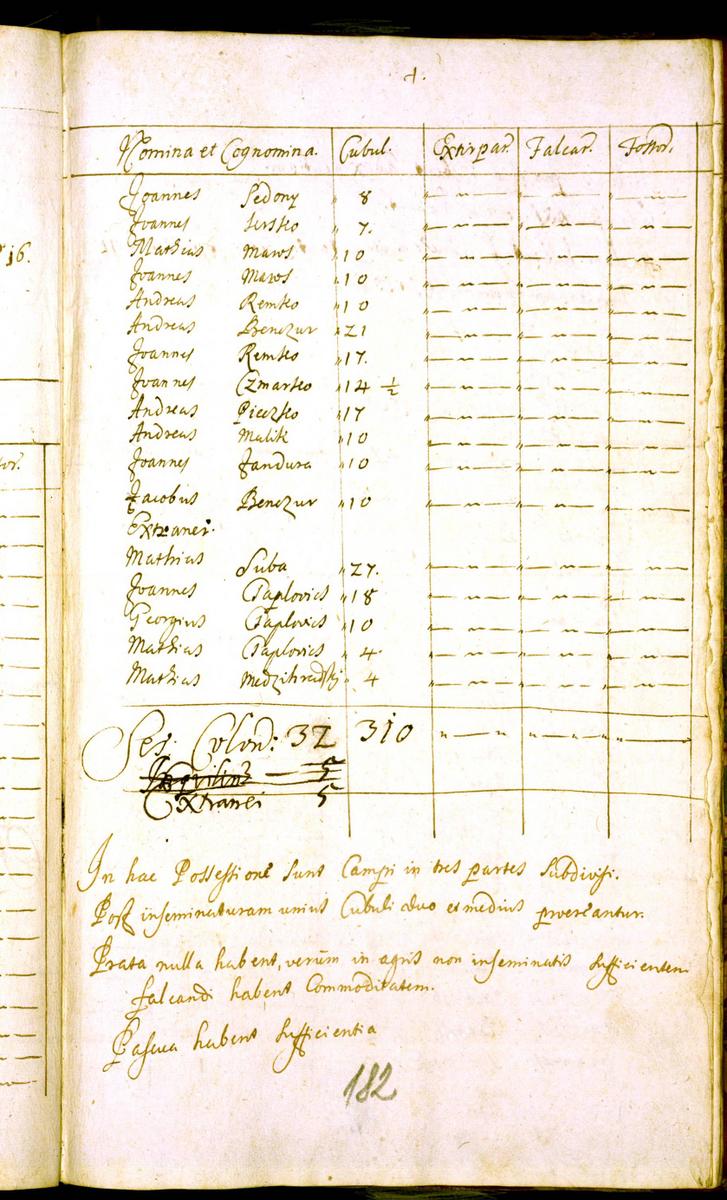 4.
Nomina et Cognomina. Cubul. Extirpar. Falcar. Fossor.
Joannes Sedony " 8 " — " — " — " — " — " —
Joannes Sersko " 7. " — " — " — " — " — " —
Mathias Maros " 10 " — " — " — " — " — " —
Joannes Maros " 10 " — " — " — " — " — " —
Andreas Remko " 10 " — " — " — " — " — " —
Andreas Benczur " 21 " — " — " — " — " — " —
Joannes Remko " 17. " — " — " — " — " — " —
Joannes Czmarko " 14 ½ " — " — " — " — " — " —
Andreas Pieczko " 17 " — " — " — " — " — " —
Andreas Malik " 10 " — " — " — " — " — " —
Joannes Jandura " 10 " — " — " — " — " — " —
Jacobus Benczur " 10 " — " — " — " — " — " —
Extranei.
Mathias Suba " 27. " — " — " — " — " — " —
Joannes Czaplovics " 18 " — " — " — " — " — " —
Georgius Czaplovics " 10 " — " — " — " — " — " —
Mathias Czaplovics " 4. " — " — " — " — " — " —
Mathias Medzihradszkj " 4 " — " — " — " — " — " —
Ses. Colon: 32 310 " — " — " — " — " — " —
Inquilini — 5
Extranei 5
In hac Possessione sunt Campi in tres partes subdivisi.
Post inseminaturam unius Cubuli duo et medius procreantur.
Prata nulla habent, verum in agris non inseminatis sufficientem
falcandi habent Commoditatem.
Pascua habent sufficientia
182
16.